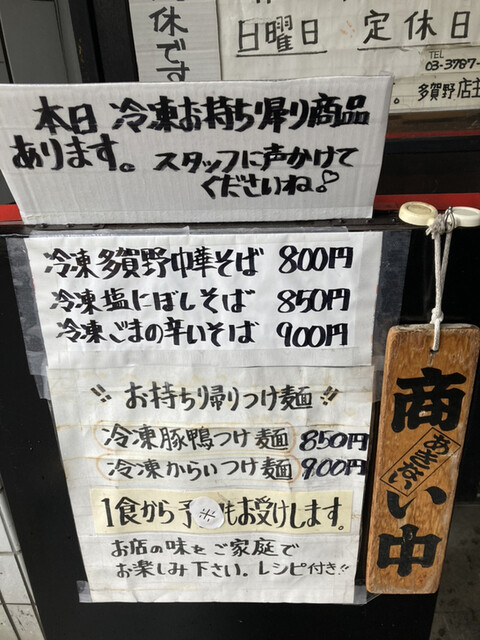 休です
日曜日 定休日
TEL
03-3787-
多賀野店主
本日 冷凍お持ち帰り商品
あります。 スタッフに声かけて
くださいね♪
冷凍多賀野中華そば 800円
冷凍塩にぼしそば 850円
冷凍ごまの辛いそば 900円
!! お持ち帰りつけ麺 !!
冷凍豚鴨つけ麺 850円
冷凍からいつけ麺 900円
1食から予 もお受けします。
お店の味をご家庭で
お楽しみ下さい。レシピ付き!!
商い中
あきない